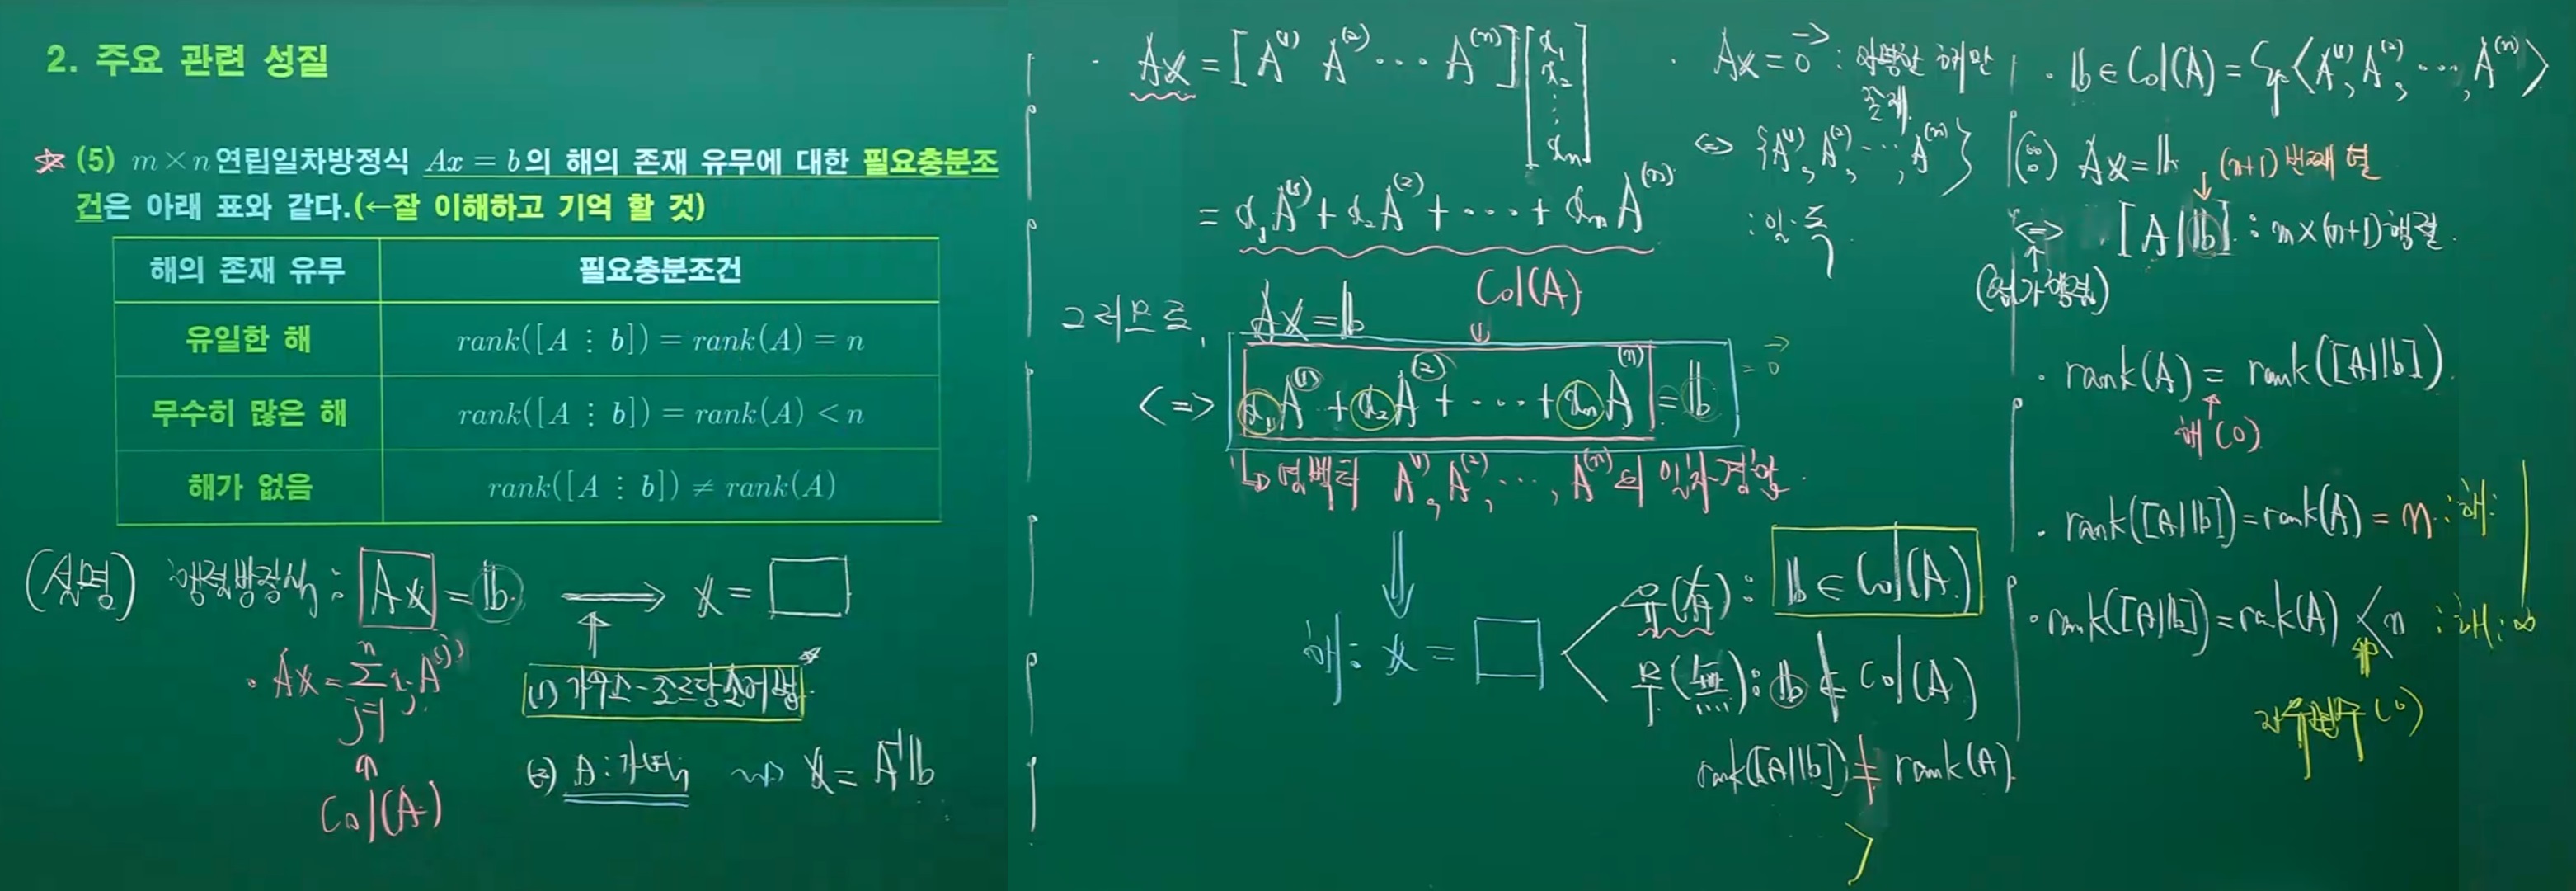 2. 주요 관련 성질
☆ (5) m×n연립일차방정식 Ax = b의 해의 존재 유무에 대한 필요충분조
건은 아래 표와 같다.(←잘 이해하고 기억 할 것)
해의 존재 유무 필요충분조건
유일한 해 rank([A ⋮ b]) = rank(A) = n
무수히 많은 해 rank([A ⋮ b]) = rank(A) < n
해가 없음 rank([A ⋮ b]) ≠ rank(A)
(설명) 행렬방정식 : Ax = b ⟶ x = □
· Ax = Σ_{j=1}^{n} x_j A^{(j)}
Col(A)
(1) 가우스-조르당 소거법
(2) A : 가역 ⇝ x = A⁻¹b
· Ax = [A^{(1)} A^{(2)} ⋯ A^{(n)}] [x₁ x₂ ⋮ xₙ]
= x₁A^{(1)} + x₂A^{(2)} + ⋯ + xₙA^{(n)}
Col(A)
그러므로, Ax = b
<=> x₁A^{(1)} + x₂A^{(2)} + ⋯ + xₙA^{(n)} = b = 0⃗
↳ 열벡터 A^{(1)}, A^{(2)}, ⋯, A^{(n)}의 일차결합
⇓
해 : x = □
유(有) : b ∈ Col(A)
무(無) : b ∉ Col(A)
rank([A|b]) ≠ rank(A)
· Ax = 0⃗ : 자명한 해만
존재
<=> {A^{(1)}, A^{(2)}, ⋯, A^{(n)}}
: 일·독
· b ∈ Col(A) = Sp⟨A^{(1)}, A^{(2)}, ⋯, A^{(n)}⟩
(∵) Ax = b (n+1)번째 열
<=> [A|b] : m×(n+1) 행렬
(첨가행렬)
· rank(A) = rank([A|b])
해(0)
· rank([A|b]) = rank(A) = n : 해:
· rank([A|b]) = rank(A) < n : 해: ∞
자유변수(0)